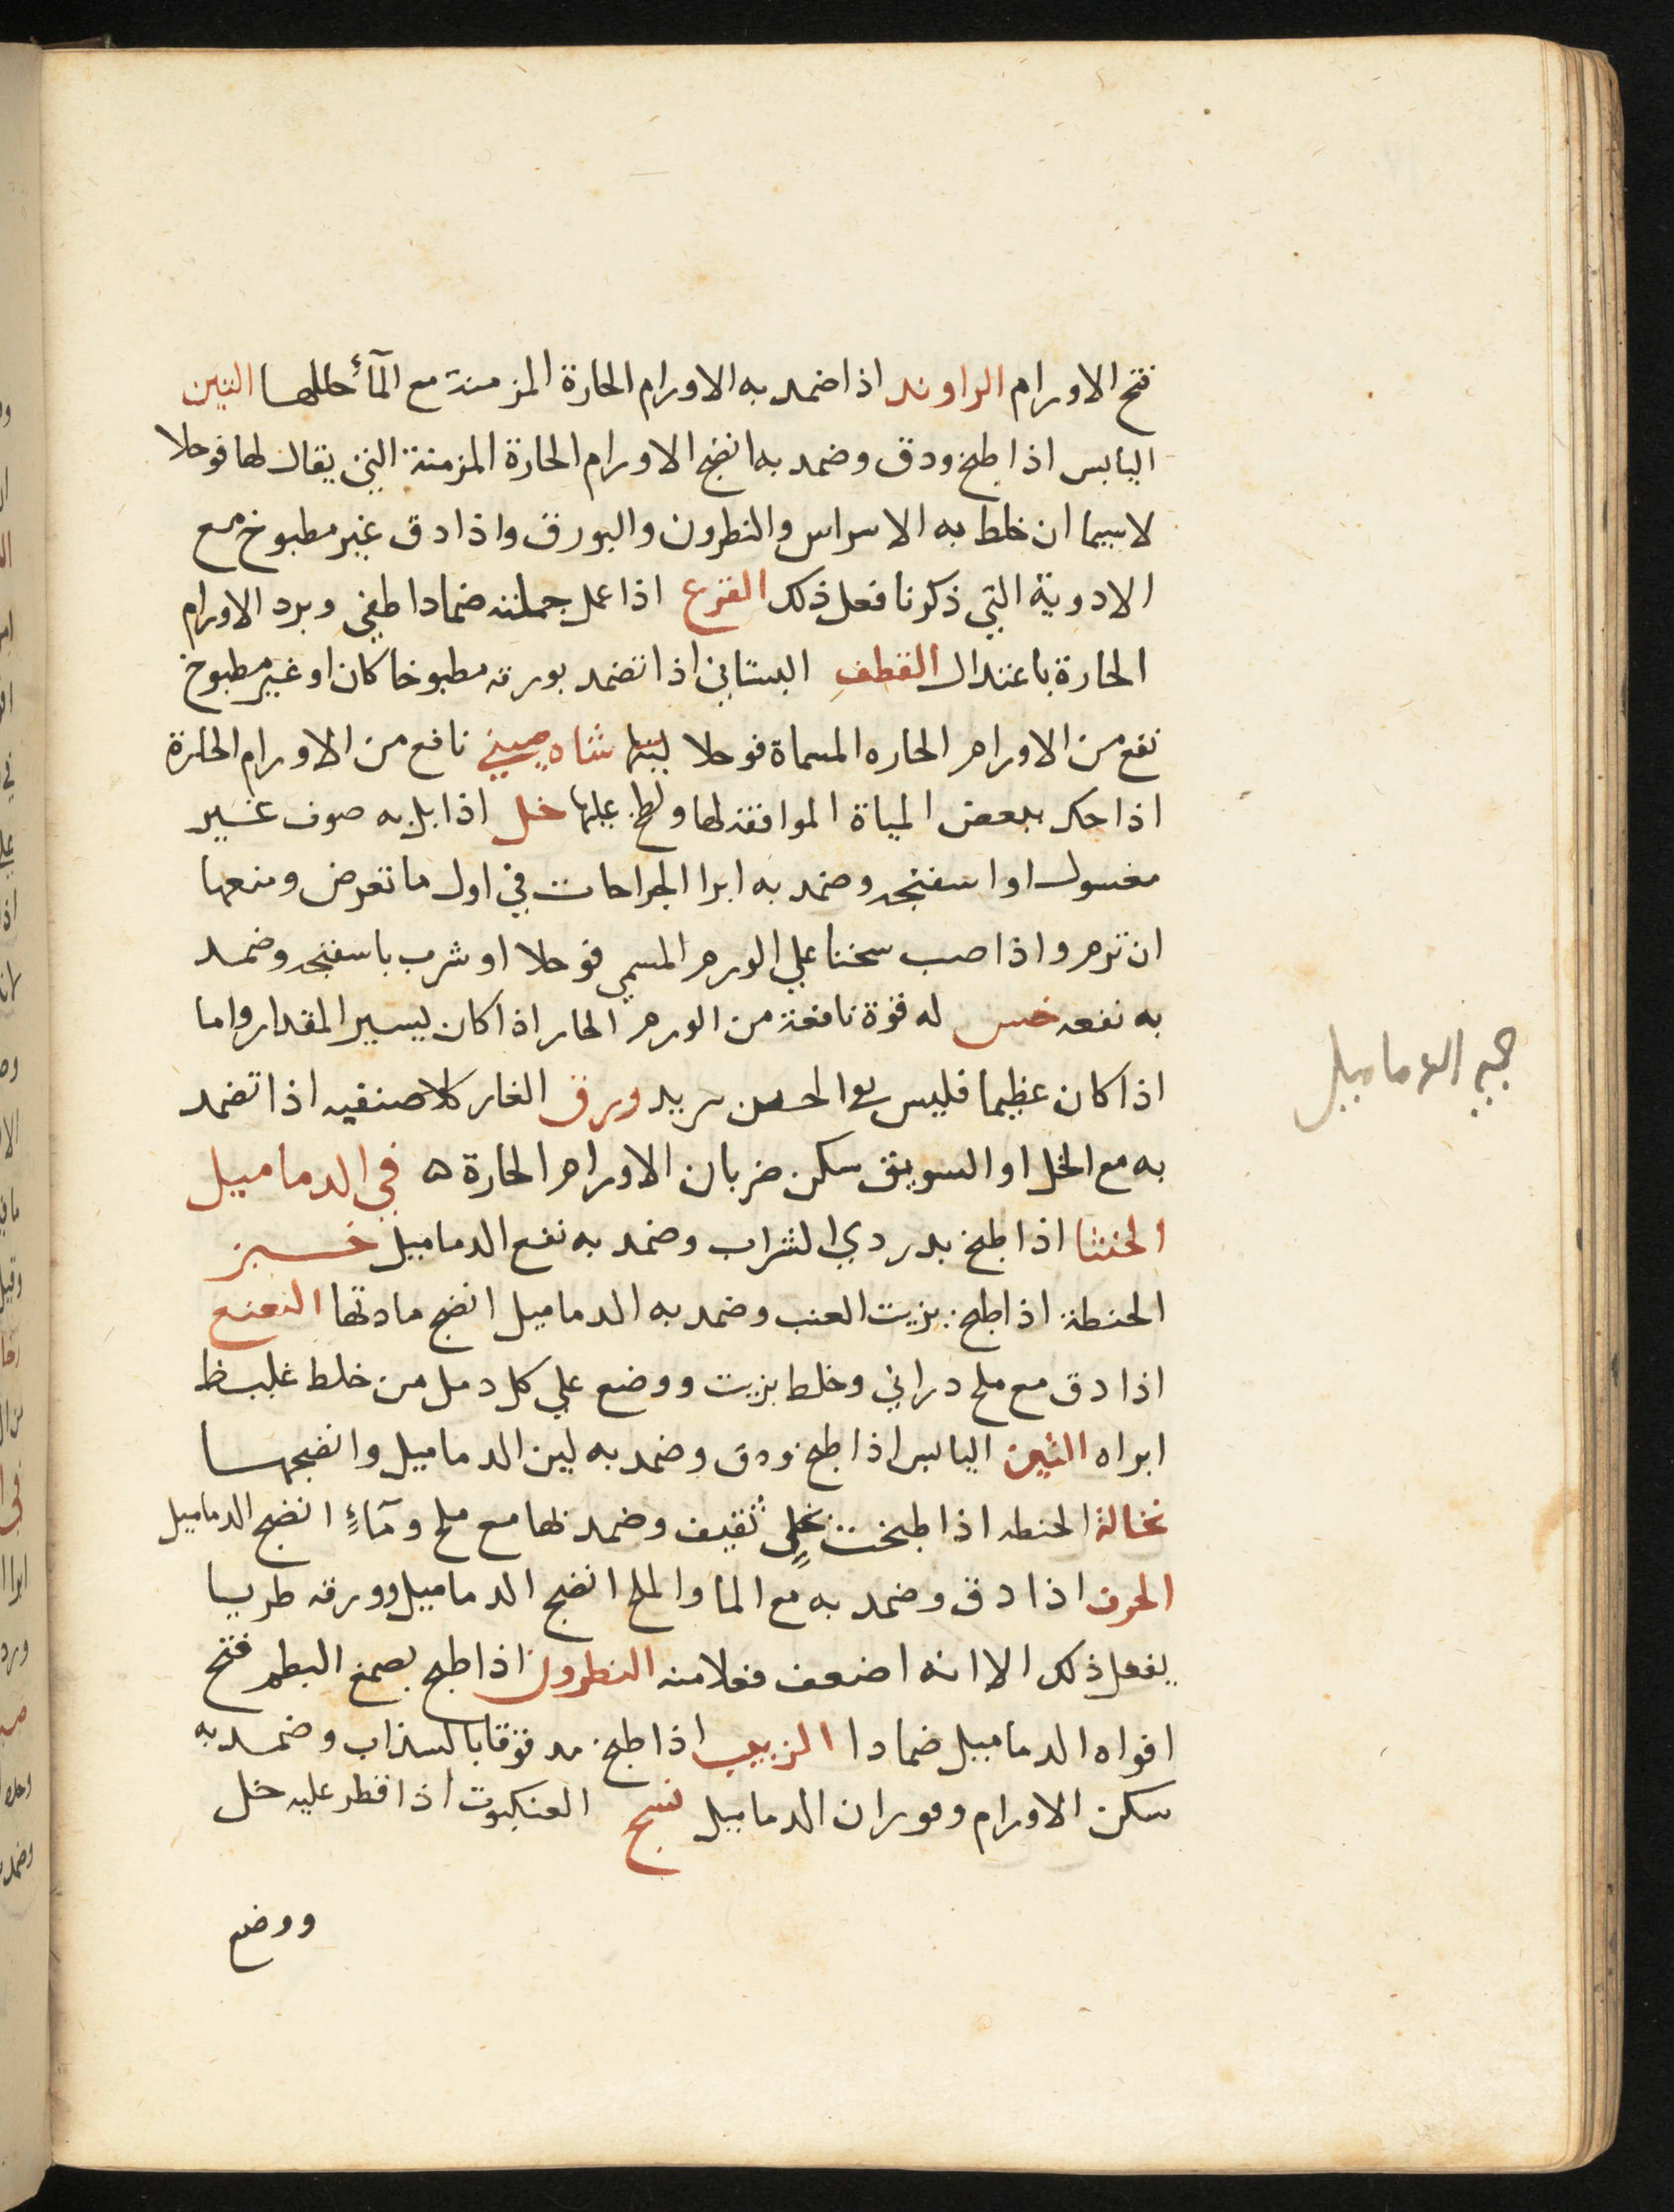 فتح الاورام الراوند اذا ضمد به الاورام الحارة المزمنة مع المآء حللها التين
اليابس اذا طبخ ودق وضمد به انضج الاورام الحارة المزمنة التي يقال لها فوحلا
لاسيما ان خلط به الاسراس والنطرون والبورق واذا دق غير مطبوخ مع
الادوية التي ذكرنا فعل ذلك القرع اذا عمل جملته ضمادا طفي وبرد الاورام
الحارة باعتدال القطف البستاني اذا تضمد بورقه مطبوخا كان او غير مطبوخ
نفع من الاورام الحاره المسماة فوحلا شاه صيني نافع من الاورام الحارة
اذا حك ببعض المياة الموافقة لها ولطخ عليها خل اذا بل به صوف غير
مغسول او اسفنجه وضمد به ابرا الجراحات في اول ما تعرض ومنعها
ان ترم واذا صب سخنا علي الورم المسمي فوحلا او شرب باسفنجه وضمد
به نفعه خس له قوة نافعة من الورم الحار اذا كان يسير المقدار واما
اذا كان عظيما فليس ورق الغار كلا صنفيه اذا تضمد
به مع الخل او السويق سكن ضربان الاورام الحارة ه في الدماميل
الخنثا اذا طبخ بدردي الشراب وضمد به نفع الدماميل خبز
الحنطة اذا طبخ بزيت العنب وضمد به الدماميل انضج مادتها النعنع
اذا دق مع ملح دراني وخلط بزيت ووضع علي كل دمل من خلط غليظ
ابراه التين اليابس اذا طبخ ودق وضمد به لين الدماميل وانضجها
نخالة الحنطه اذا طبخت بخل ثقيف وضمد بها مع ملح ومآءٍ انضج الدماميل
الحرف اذا دق وضمد به مع الما والملح انضج الدماميل وورقه طريا
يفعل ذلك الا انه اضعف فعلا منه النطرون اذا طبخ بصمغ البطم فتح
افواه الدماميل ضمادا الزبيب اذا طبخ مدقوقا بالسذاب وضمد به
سكن الاورام وفوران الدماميل نسج العنكبوت اذا قطر عليه خل
ووضع
الدماميل